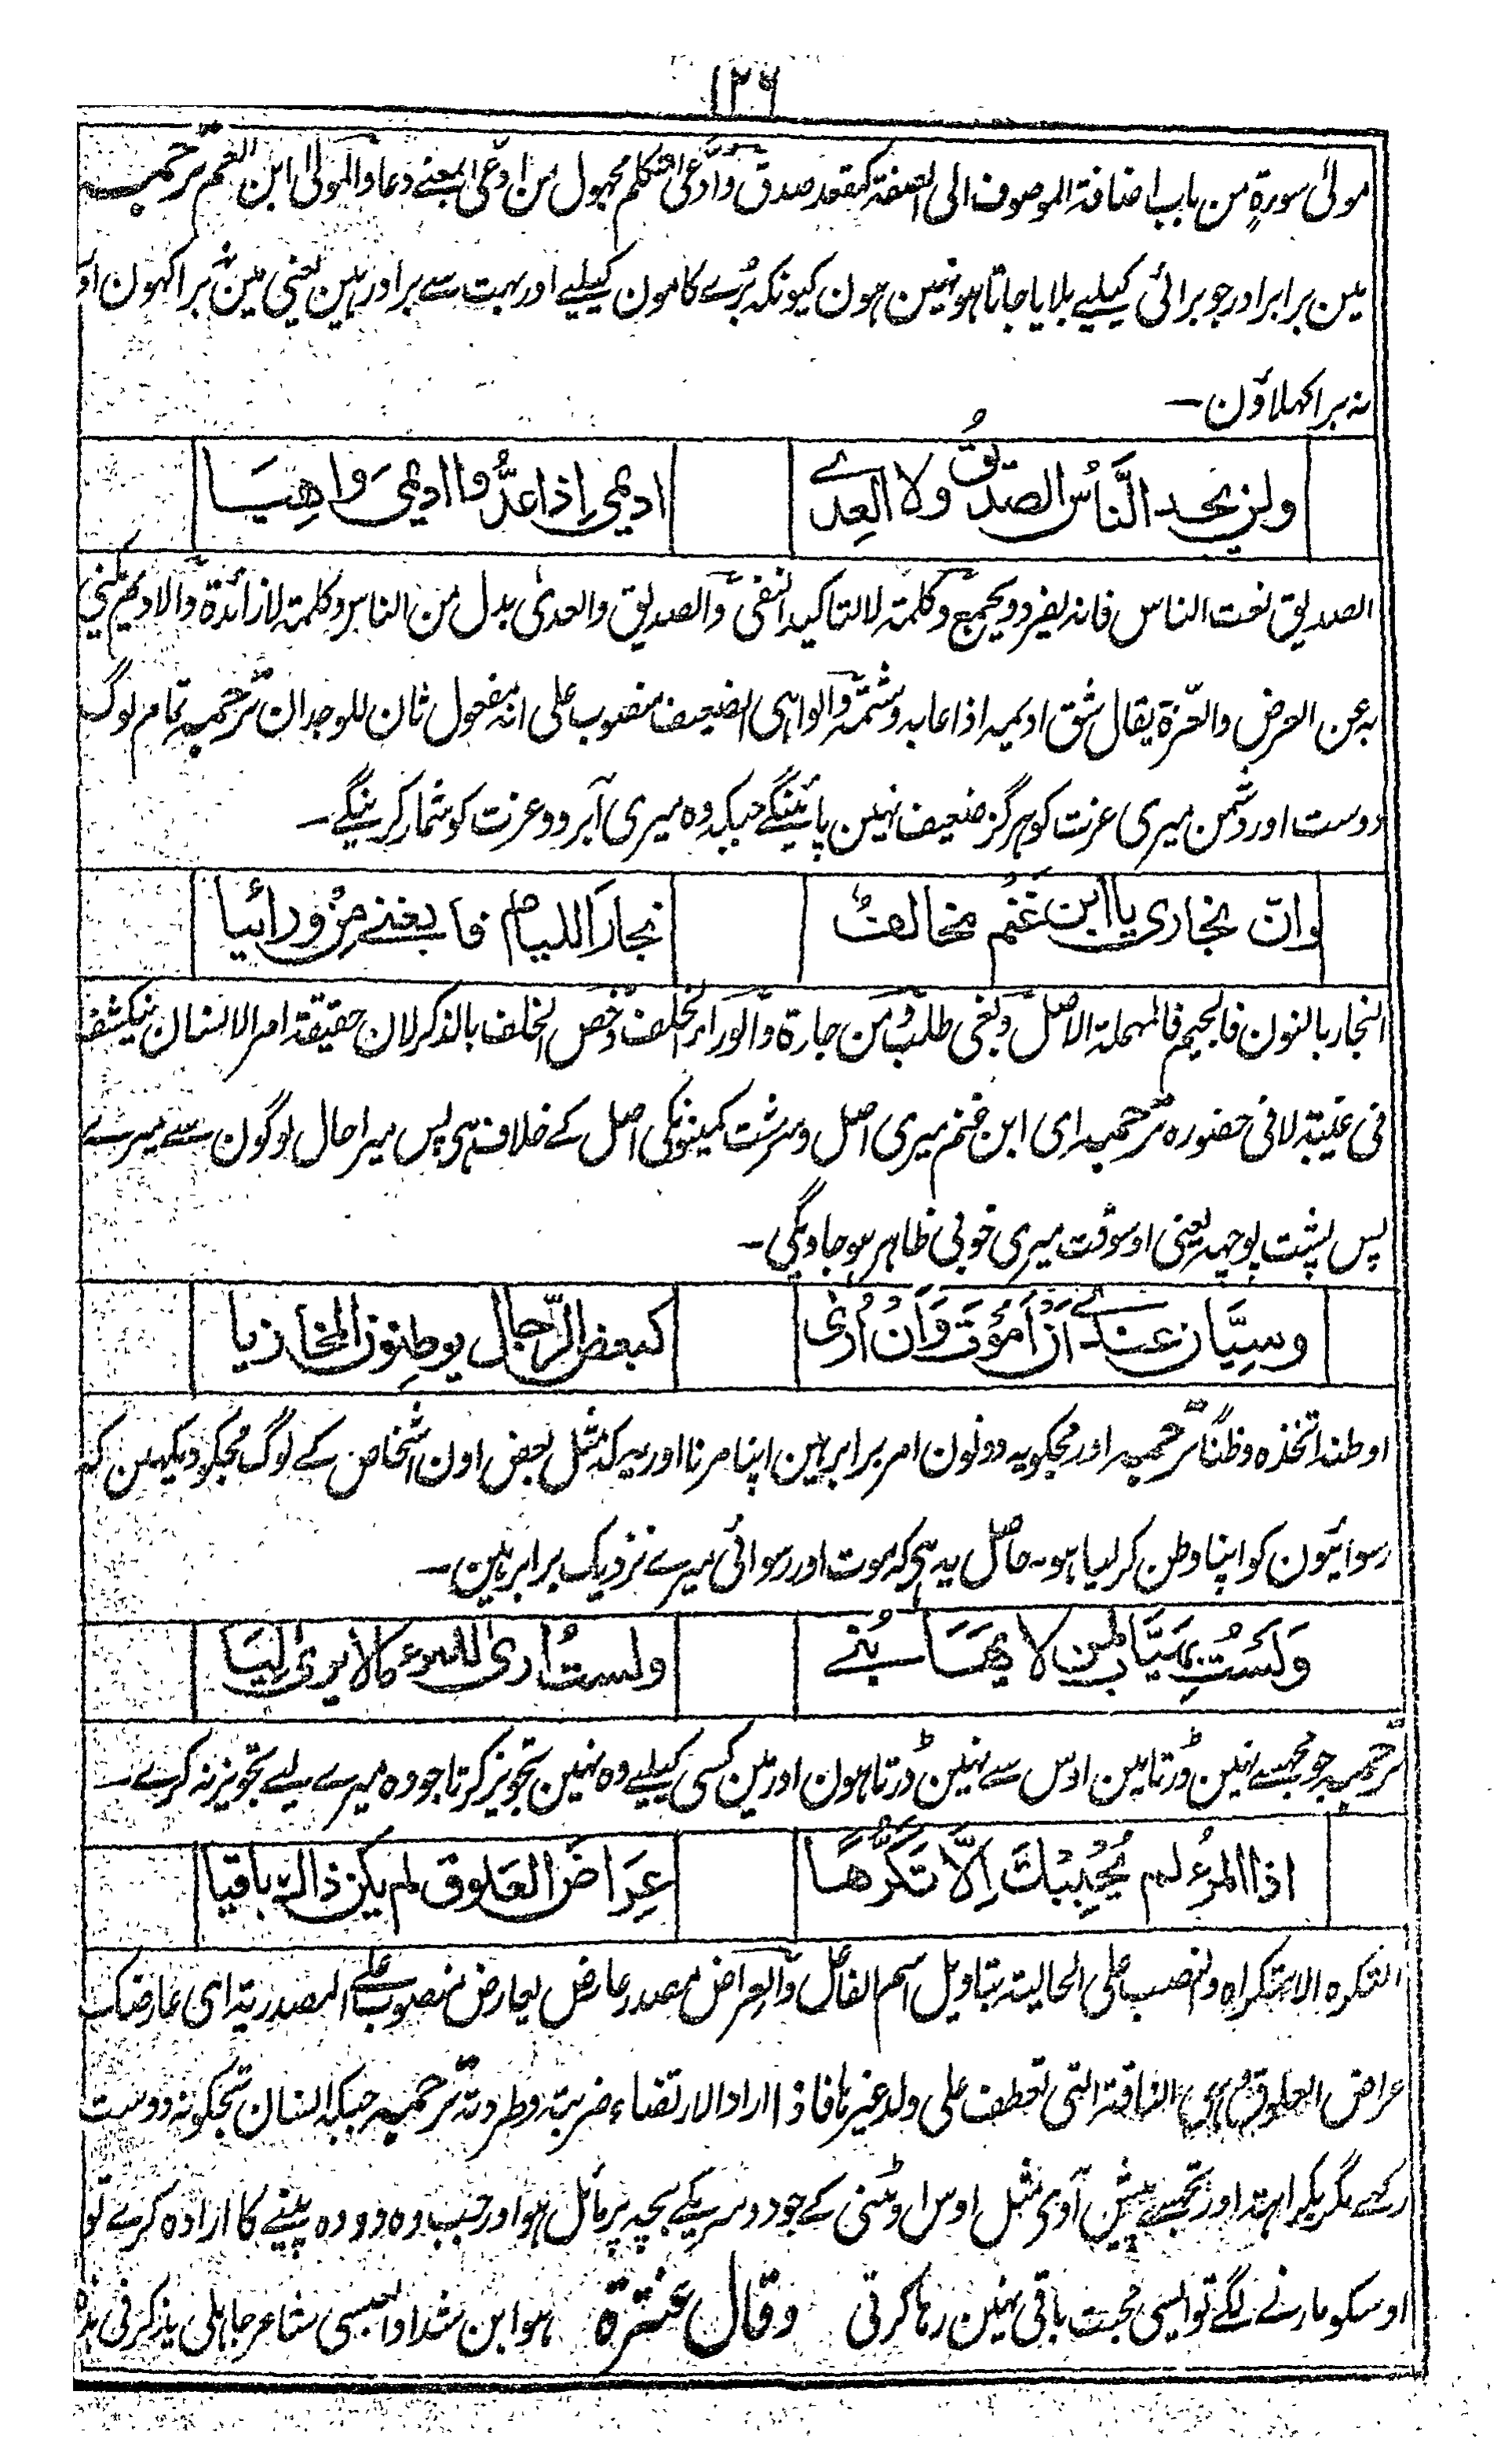 ۱۲۶
مولیٰ سورةٍ من باب اضافة الموصوف الی الصفة کمقعد صدق وادّعی المتکلم مجہول من ادّعی بمعنے دعا والمولیٰ ابن العم ترجمہ
مین برابر اور جو برائی کیلیے بلایا جاتا ہو نہین ہون کیونکہ بُرے کامون کیلیے اور بہت سے برادر ہین یعنی مین نہ برا کہون اور
نہ برا کہلاؤن –
ولن یجد النَّاسُ الصدیقُ ولا العِدے
ادیمی اِذا عدُّوا ادیمیَ واهِیَا
الصدیق نعت الناس فانہ یفرد ویجمع وکلمة لا لتاکید النفی والصدیق والعدیٰ بدل من الناس وکلمة لا زائدة والادیم یکنی
بہ عن العرض والعزة یقال شق ادیمہ اذا عابہ وشتمہ والواہی الضعیف منصوب علی انہ مفعول ثان للوجدان ترجمہ تمام لوگ
دوست اور دشمن میری عزت کو ہرگز ضعیف نہین پائینگے جبکہ وہ میری آبرو وعزت کو شمار کرینگے –
وانّ نجاری یا ابن غَنْم مخالفٌ
نجارَ اللیام فابغنے من ورائیا
النجار بالنون فالجیم فالمہملة الاصل وبغی طلب من جارة والوراء الخلف وخص الخلف بالذکر لان حقیقة امر الانسان ینکشف
فی غیبتہ لا فی حضورہ ترجمہ ای ابن غنم میری اصل و سرشت کمینونکی اصل کے خلاف ہی پس میرا حال لوگون سے میرے
پس پشت پوچہہ یعنی اوسوقت میری خوبی ظاہر ہو جاویگی –
وسِیَّان عندے اَنْ اَمُوْتَ وَاَنْ اُرٰی
کبعض الرّجال یوطِنون المخازیا
اوطنہ اتخذہ وطناً ترجمہ اور مجکو یہ دونون امر برابر ہین اپنا مرنا اور یہ کہ مثل بعض اون اشخاص کے لوگ مجکو دیکہین کہ
رسوائیون کو اپنا وطن کر لیا ہو۔ حاصل یہ ہی کہ موت اور رسوائی میرے نزدیک برابر ہین –
وَلَسْتُ بِهَیَّابٍ لمن لا یَهَابُنے
ولستُ اریٰ للمرء مالا یریٰ لِیَا
ترجمہ جو مجھسے نہین ڈرتا مین اوس سے نہین ڈرتا ہون اور مین کسی کیلیے وہ نہین تجویز کرتا جو وہ میرے لیے تجویز نہ کرے –
اذا المرءُ لم یُحْبِبْكَ اِلَّا تَکَرُّهًا
عِرَاضَ العَلوق لم یکن ذاك باقیا
التکرہ الاستکراہ ونصب علی الحالیة بتاویل اسم الفاعل والعِراض مصدر عارض یعارض منصوب علے المصدریة ای عارضک
عراض العلوق وہی الناقة التی تعطف علی ولد غیرہا فاذا اراد الارتضاع ضربتہ وطردتہ ترجمہ جبکہ انسان تجکو نہ دوست
رکہے مگر بکراہت اور تجھسے پیش آوی مثل اوس اونٹنی کے جو دوسریکے بچہ پر مائل ہو اور جب وہ دودہ پینے کا ارادہ کرے تو
اوسکو مارنے لگے تو ایسی محبت باقی نہین رہا کرتی وقال عنترة ہو ابن شداد العبسی شاعر جاہلی یذکر فی ہذہ